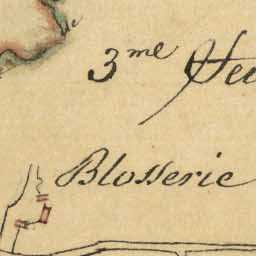 3.me Feu
Blosserie